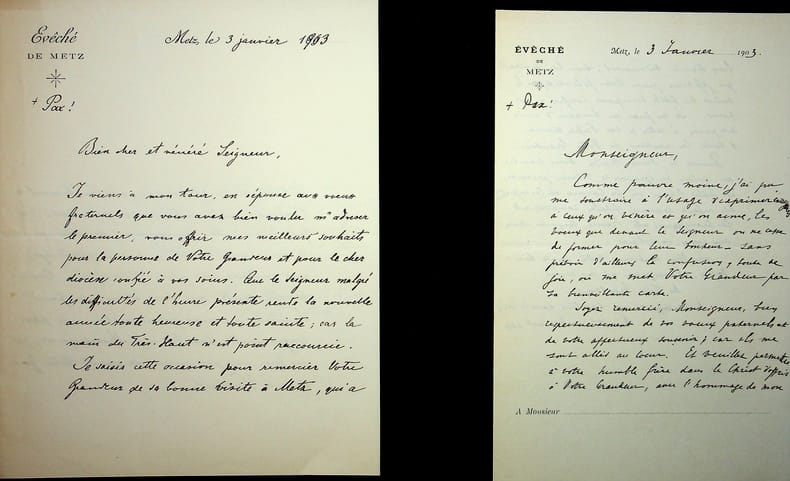 Evêché
DE METZ
+ Pax !
Metz, le 3 janvier 1903
Bien cher et vénéré Seigneur,
Je viens à mon tour, en réponse aux vœux
fraternels que vous avez bien voulu m'adresser
le premier, vous offrir mes meilleurs souhaits
pour la personne de Votre Grandeur et pour le cher
diocèse confié à vos soins. Que le Seigneur malgré
les difficultés de l'heure présente rende la nouvelle
année toute heureuse et toute sainte ; car la
main du Très-Haut n'est point raccourcie.
Je saisis cette occasion pour remercier Votre
Grandeur de sa bonne visite à Metz, qui a
ÉVÊCHÉ
DE
METZ
+ Pax !
Metz, le 3 Janvier 1903.
Monseigneur,
Comme pauvre moine, j'ai pu
me soustraire à l'usage d'exprimer
à ceux qu'on vénère et qu'on aime, les
vœux que devant le Seigneur on ne cesse
de former pour leur bonheur - sans
prévoir d'ailleurs la confusion, toute de
joie, où me met Votre Grandeur par
sa bienveillante carte.
Soyez remercié, Monseigneur, bien
respectueusement de vos vœux paternels et
de votre affectueux souvenir ; car ils me
sont allés au cœur. Et veuillez permettre
à votre humble frère dans le Christ d'offrir
à Votre Grandeur, avec l'hommage de mon
A Monsieur